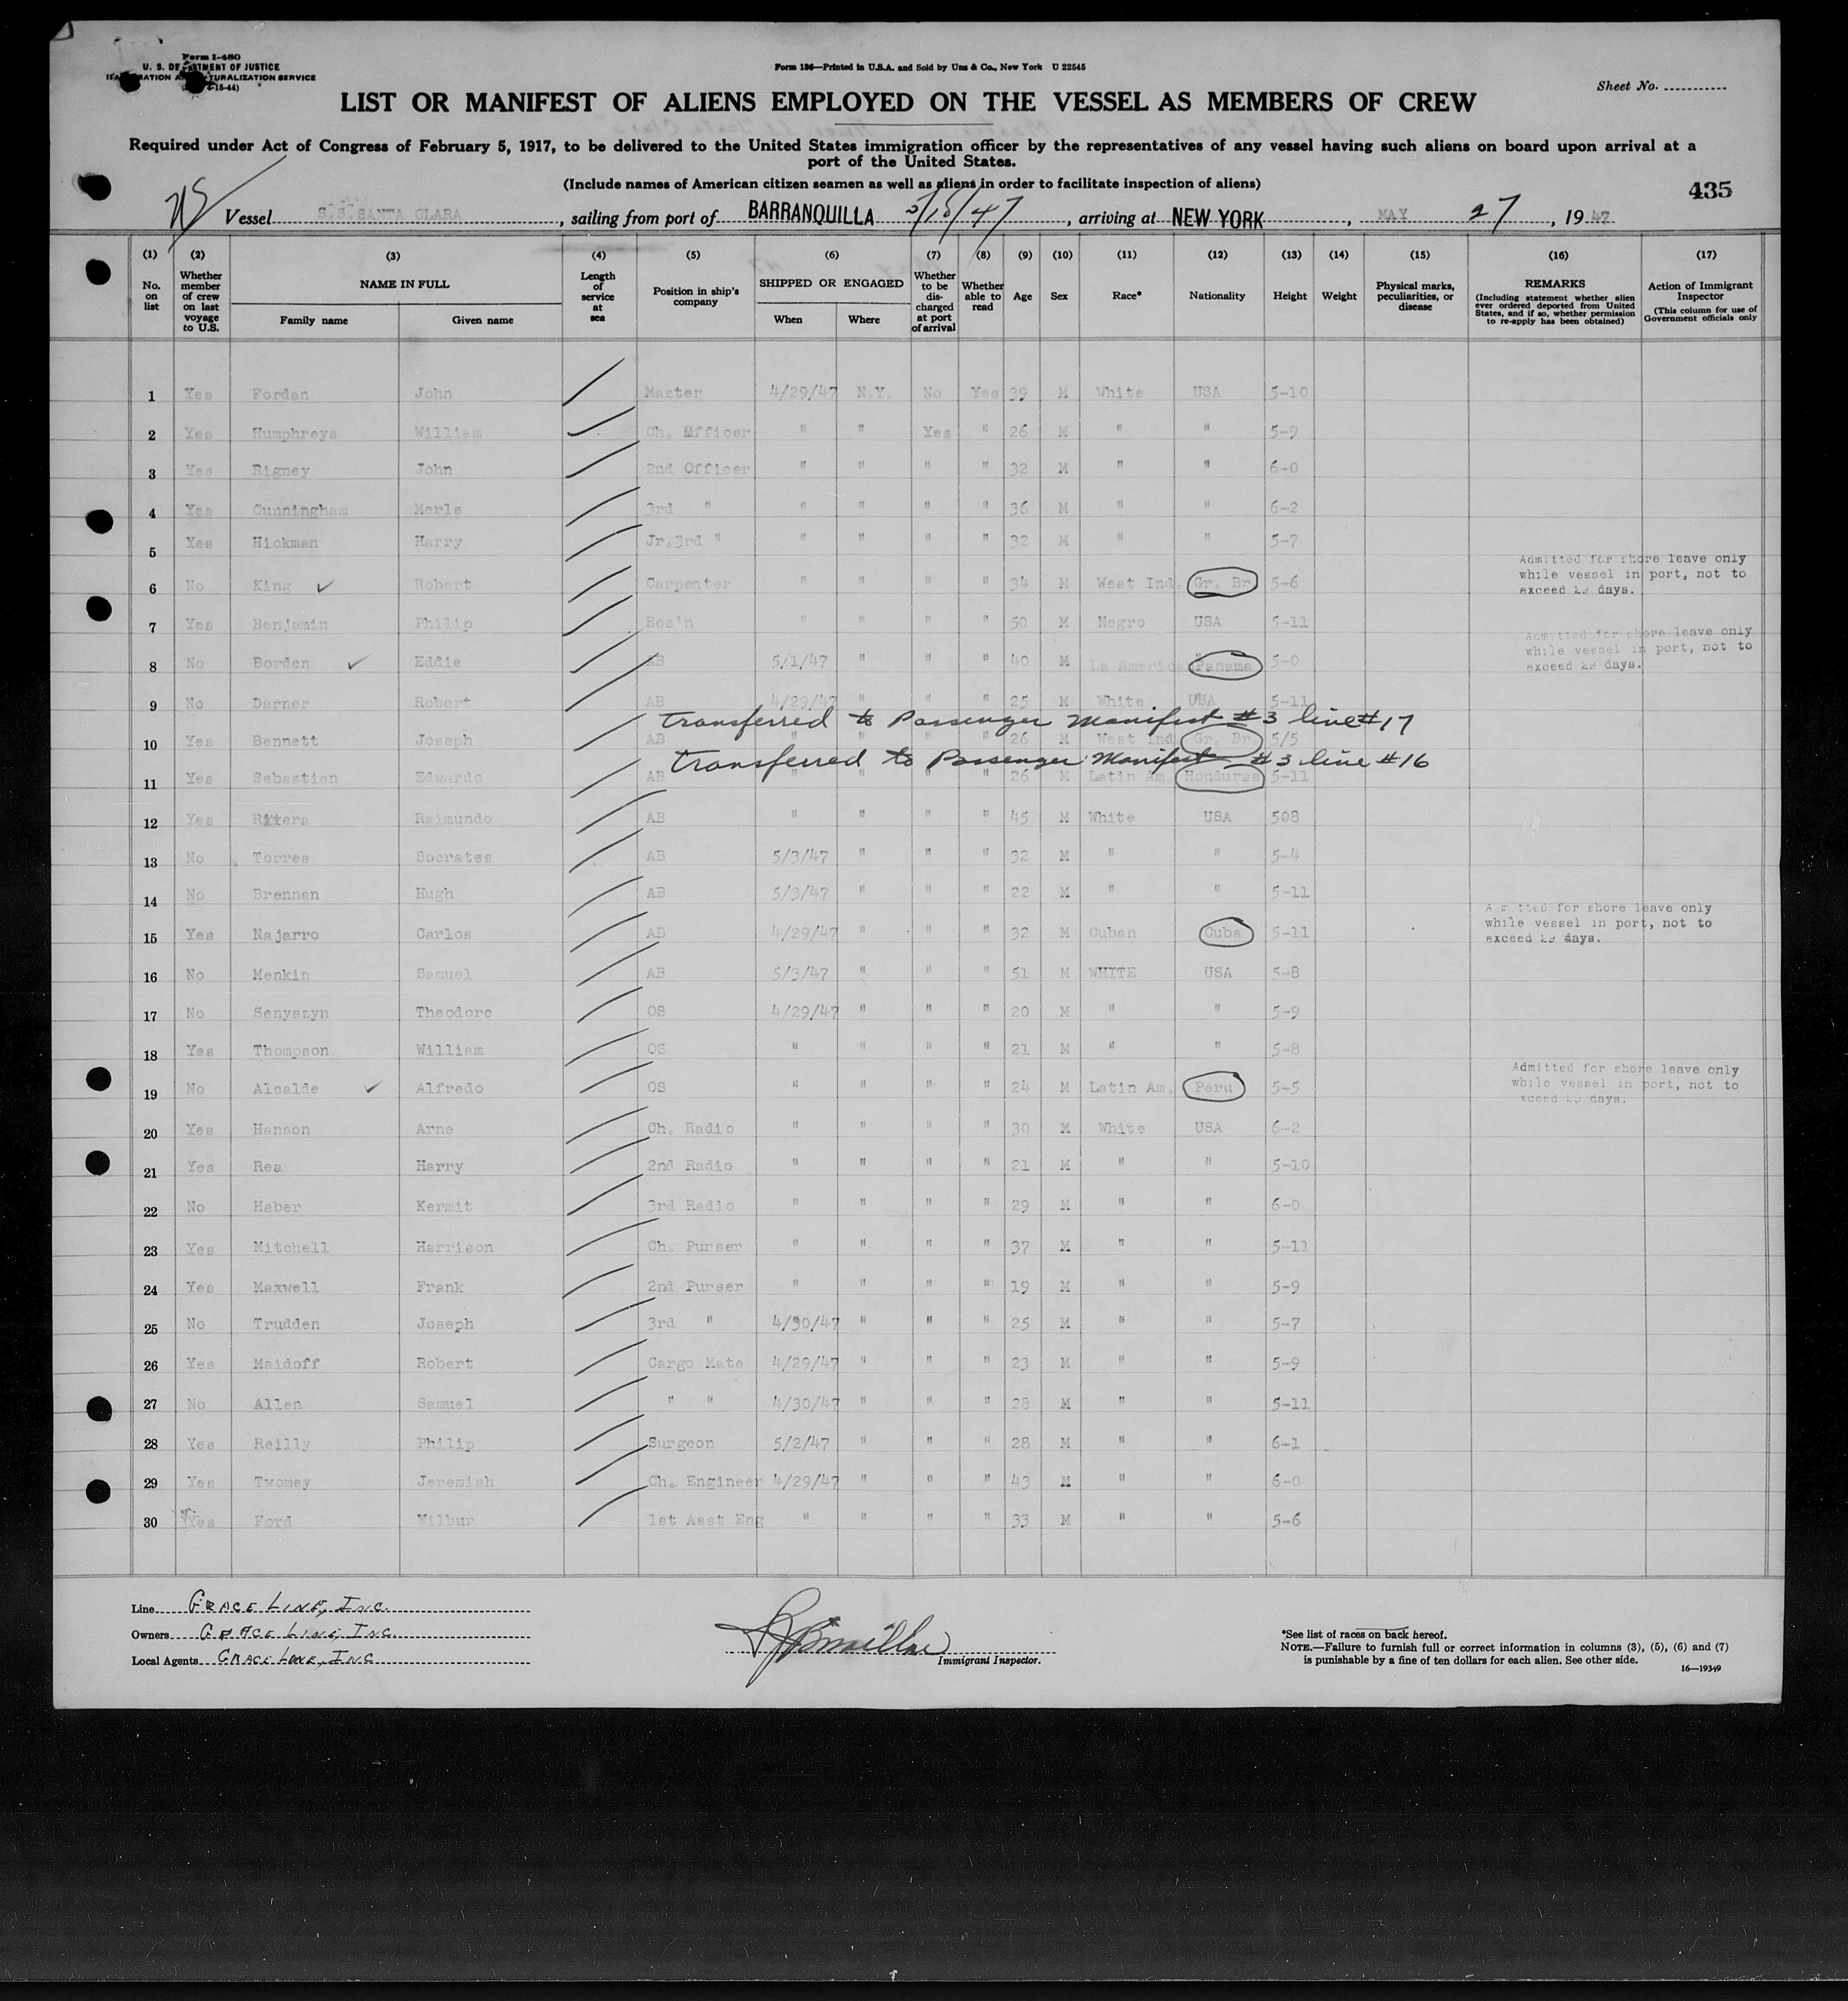 Form I-480
U. S. DEPARTMENT OF JUSTICE
IMMIGRATION AND NATURALIZATION SERVICE
Form 136—Printed in U.S.A. and Sold by Unz & Co., New York U 22545
Sheet No.
LIST OR MANIFEST OF ALIENS EMPLOYED ON THE VESSEL AS MEMBERS OF CREW
Required under Act of Congress of February 5, 1917, to be delivered to the United States immigration officer by the representatives of any vessel having such aliens on board upon arrival at a
port of the United States.
(Include names of American citizen seamen as well as aliens in order to facilitate inspection of aliens)
435
Vessel S.S. SANTA CLARA, sailing from port of BARRANQUILLA, arriving at NEW YORK, MAY 27, 1947
(1) (2) (3) (4) (5) (6) (7) (8) (9) (10) (11) (12) (13) (14) (15) (16) (17)
No. on list Whether member of crew on last voyage to U.S. NAME IN FULL Family name Given name Length of service at sea Position in ship's company SHIPPED OR ENGAGED When Where Whether to be discharged at port of arrival Whether able to read Age Sex Race* Nationality Height Weight Physical marks, peculiarities, or disease REMARKS (Including statement whether alien ever ordered deported from United States, and if so, whether permission to re-apply has been obtained) Action of Immigrant Inspector (This column for use of Government officials only
1 Yes Fordan John Master 4/29/47 N.Y. No Yes 39 M White USA 5-10
2 Yes Humphreys William Ch. Officer " " Yes " 26 M " " 5-9
3 Yes Rigney John 2nd Officer " " " " 32 M " " 6-0
4 Yes Cunningham Merle 3rd " " " " " 36 M " " 6-2
5 Yes Hickman Harry Jr.3rd " " " " " 32 M " " 5-7
6 No King Robert Carpenter " " " " 34 M West Ind. Gr. Br 5-6 Admitted for shore leave only while vessel in port, not to exceed 29 days.
7 Yes Benjamin Philip Bos'n " " " " 50 M Negro USA 5-11
8 No Borden Eddie AB 5/1/47 " " " 40 M La American Panama 5-0 Admitted for shore leave only while vessel in port, not to exceed 29 days.
9 No Darner Robert AB 4/29/47 " " " 25 M White USA 5-11
transferred to Passenger Manifest #3 line #17
10 Yes Bennett Joseph AB " " " " 26 M West Ind Gr. Br. 5/5
transferred to Passenger Manifest #3 line #16
11 Yes Sebastian Edwardo AB " " " " 26 M Latin Am. Honduras 5-11
12 Yes Raimundo AB " " " " 45 M White USA 508
13 No Torres Socrates AB 5/3/47 " " " 32 M " " 5-4
14 No Brennan Hugh AB 5/3/47 " " " 22 M " " 5-11
15 Yes Najarro Carlos AB 4/29/47 " " " 32 M Cuban Cuba 5-11 Admitted for shore leave only while vessel in port, not to exceed 29 days.
16 No Menkin Samuel AB 5/3/47 " " " 51 M WHITE USA 5-8
17 No Senyszyn Theodore OS 4/29/47 " " " 20 M " " 5-9
18 Yes Thompson William OS " " " " 21 M " " 5-8
19 No Alcalde Alfredo OS " " " " 24 M Latin Am. Peru 5-5 Admitted for shore leave only while vessel in port, not to exceed 29 days.
20 Yes Hanson Arne Ch. Radio " " " " 30 M White USA 6-2
21 Yes Rea Harry 2nd Radio " " " " 21 M " " 5-10
22 No Haber Kermit 3rd Radio " " " " 29 M " " 6-0
23 Yes Mitchell Harrison Ch. Purser " " " " 37 M " " 5-11
24 Yes Maxwell Frank 2nd Purser " " " " 19 M " " 5-9
25 No Trudden Joseph 3rd " 4/30/47 " " " 25 M " " 5-7
26 Yes Maidoff Robert Cargo Mate 4/29/47 " " " 23 M " " 5-9
27 No Allen Samuel " " 4/30/47 " " " 28 M " " 5-11
28 Yes Reilly Philip Surgeon 5/2/47 " " " 28 M " " 6-1
29 Yes Twomey Jeremiah Ch. Engineer 4/29/47 " " " 43 M " " 6-0
30 Yes Ford Wilbur 1st Asst Eng " " " " 33 M " " 5-6
Line GRACE LINE, INC.
Owners GRACE LINE, INC.
Local Agents GRACE LINE, INC
Immigrant Inspector.
*See list of races on back hereof.
NOTE.—Failure to furnish full or correct information in columns (3), (5), (6) and (7)
is punishable by a fine of ten dollars for each alien. See other side.
16—19349